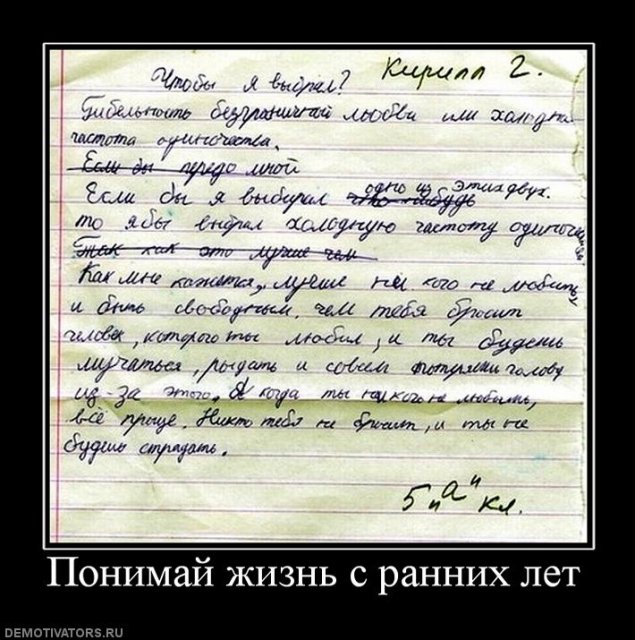 Кирилл 2.
Чтобы я выбрал?
Гибельность безграничной любви или холодная
частота одиночества.
Если бы передо мной
Если бы я выбирал что-нибудь одно из этих двух.
то я бы выбрал холодную частоту одиночества.
Так как это лучше чем
Как мне кажется, лучше ни кого не любить
и быть свободным, чем тебя бросит
человек, которого ты любил, и ты будешь
мучаться, рыдать и совсем потеряешь голову
из-за этого. А когда ты ни кого не любишь,
всё проще. Никто тебя не бросит, и ты не
будешь страдать.
5 "а" кл.
Понимай жизнь с ранних лет
DEMOTIVATORS.RU